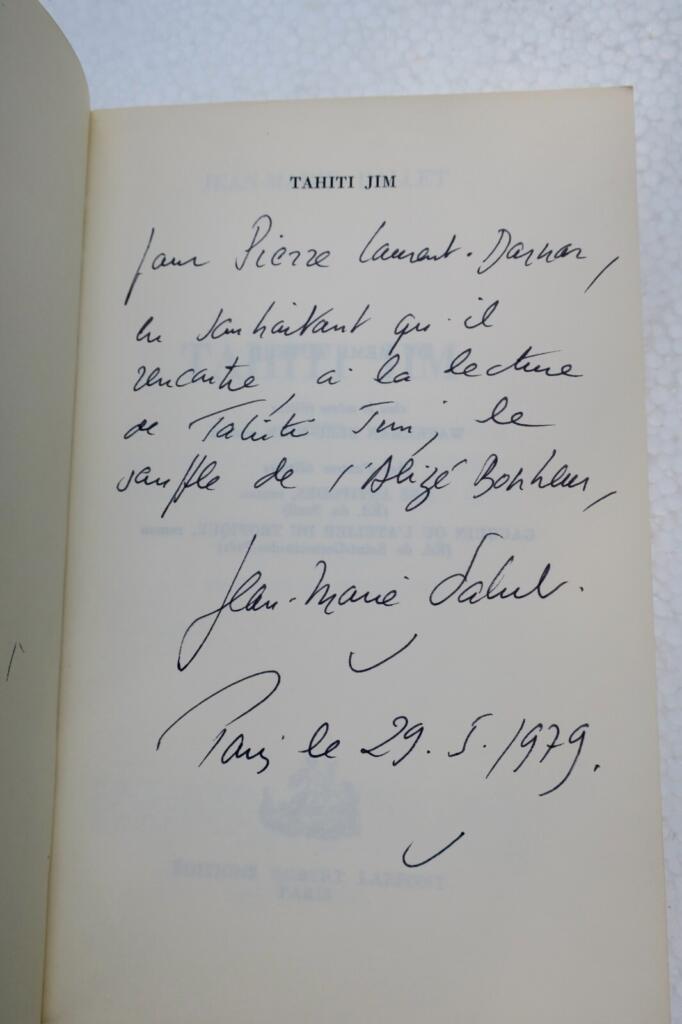 TAHITI JIM
Pour Pierre Laurent-Darnar,
en souhaitant qu'il
rencontre, à la lecture
de Tahiti Jim, le
souffle de l'Alizé Bonheur,
Jean-Marie Dallet.
Paris le 29. 5. 1979.